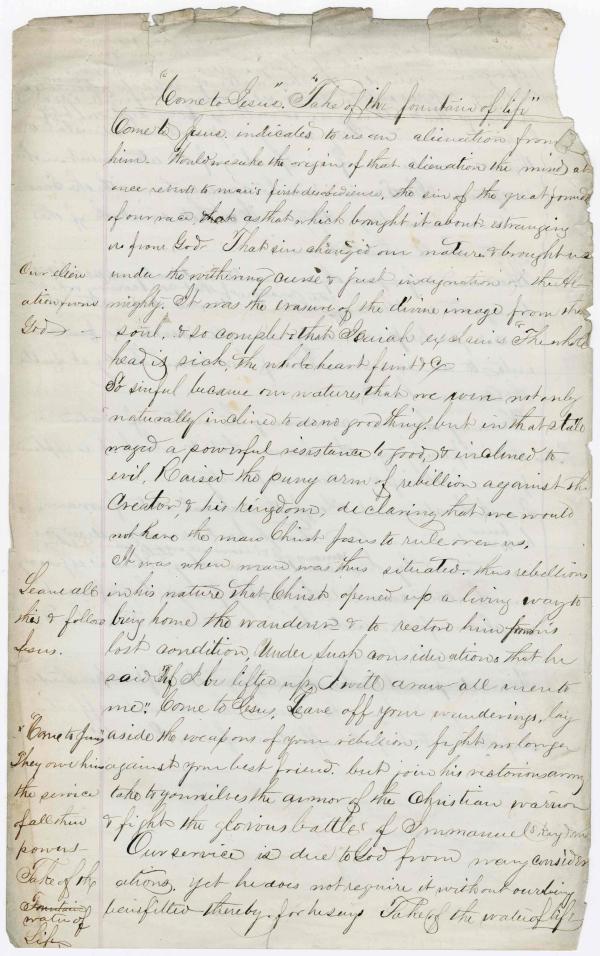 "Come to Jesus". "Take of the fountain of life"
Come to Jesus. indicates to us an alienation from
him. Would we seke the origin of that alienation the mind at
once reverts to man's first disobedience, the sin of the great
of our race, as that which brought it about estranging
us from God That sin changed our nature & brought us
Our alien
ation from
God
under the withering curse & just indignation the Al
mighty. It was the erasure of the divine image from the
soul, & so complete that Isaiah exclaims "The whole
head is sick, the whole heart faint &c
So sinful became our natures that we were not only
naturally inclined to do no good thing, but in that state
waged a powerful resistance to good, & inclined to
evil. Raised the puny arm of rebillion against the
Creator, & his kingdom, declaring that we would
not have the man Christ Jesus to rule over us.
It was when man was thus situated. thus rebellious
Leave all
this & follow
Jesus.
in his nature that Christ opened up a living way to
bring home the wanderer & to restore him his
lost condition. Under such considerations that he
said "If I be lifted up, I will draw all men to
me". Come to Jesus, Leave off your wanderings, lay
"Come to Jesus"
They owe him
the service
of all their
powers
Take of the
Fountain of
water of
Life
aside the weapons of your rebellion, fight no longer
against your best friend. but join his victorious army
take to yourselves the armor of the Christian warrior
& fight the glorious battles of Immanuel
Our service is due to God from many consider
ations, yet he does not require it without our being
benifitted thereby. for he says Take of the water of life